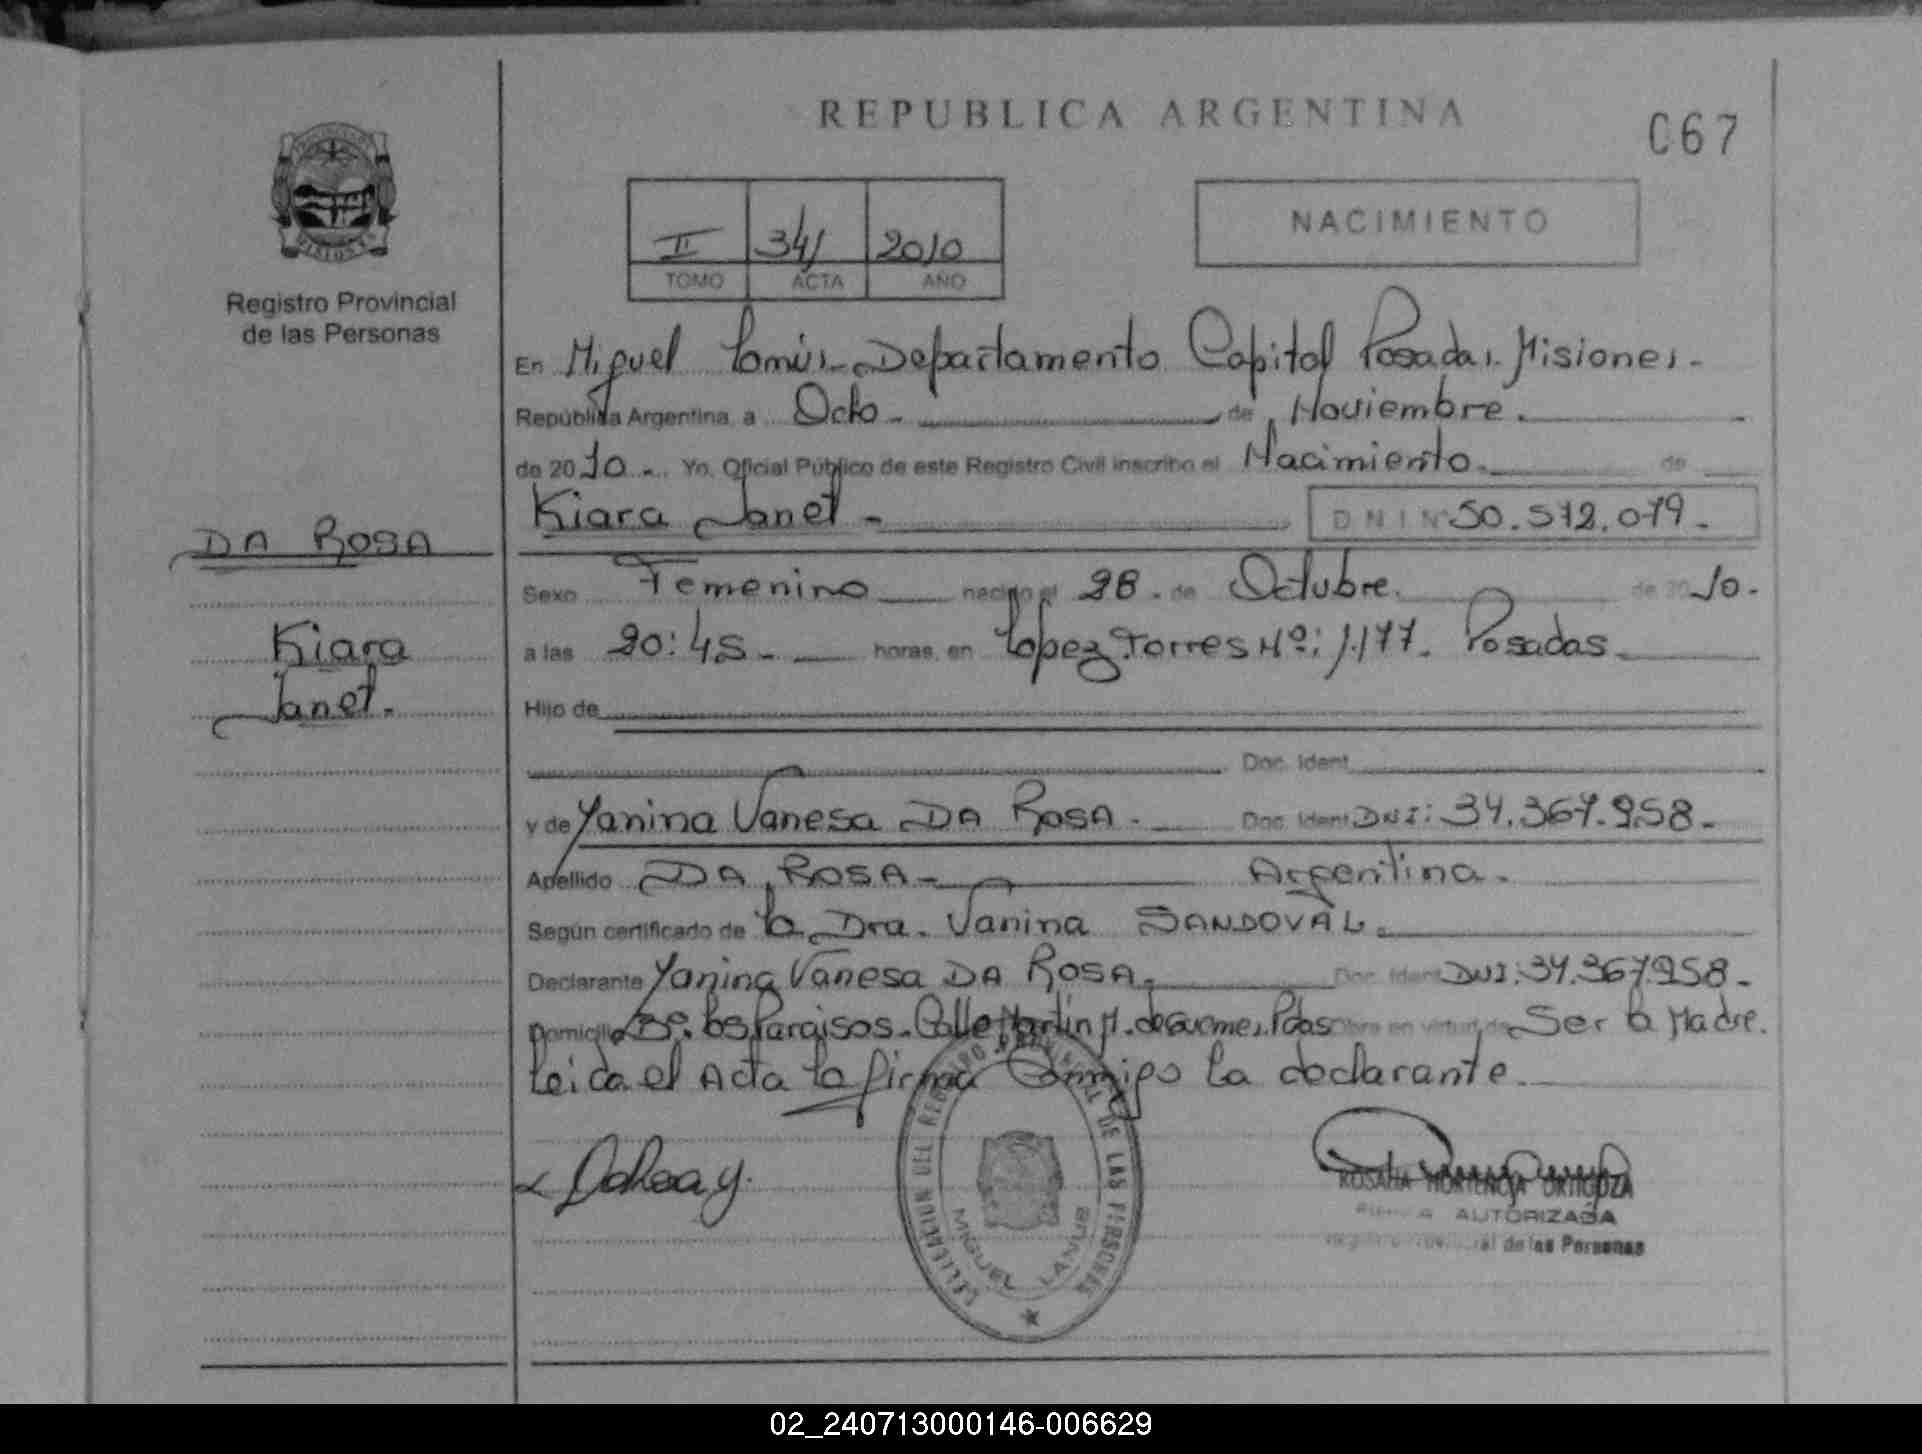 REPUBLICA ARGENTINA
067
Registro Provincial
de las Personas
II 341 2010
TOMO ACTA AÑO
NACIMIENTO
En Miguel Lanús - Departamento Capital Posadas. Misiones -
República Argentina, a Ocho - de Noviembre.
de 2010 - Yo, Oficial Público de este Registro Civil inscribo el Nacimiento. de
Kiara Janet - DNI Nº 50.572.079 -
DA ROSA
Kiara
Janet.
Sexo Femenino nacido el 28 . de Octubre. de 2010.
a las 20:45 - horas, en Lopez Torres Nº: 1.177. Posadas
Hijo de
Doc. Ident.
y de Yanina Vanesa DA ROSA . Doc. Ident. DNI: 34.367.958 -
Apellido DA ROSA - Argentina.
Según certificado de la Dra. Vanina SANDOVAL.
Declarante Yanina Vanesa DA ROSA. Doc. Ident. DNI: 34.367.958 -
Domicilio Bº. Los Paraisos - Calle Martin M. de Guemes. Pdas Obra en virtud de Ser la Madre.
Leida el Acta la firma Conmigo la declarante.
MIGUEL LANUS
DEL REGISTRO PROVINCIAL DE LAS PERSONAS
HORTENCIA ORTIGOZA
AUTORIZADA
de las Personas
02_240713000146-006629